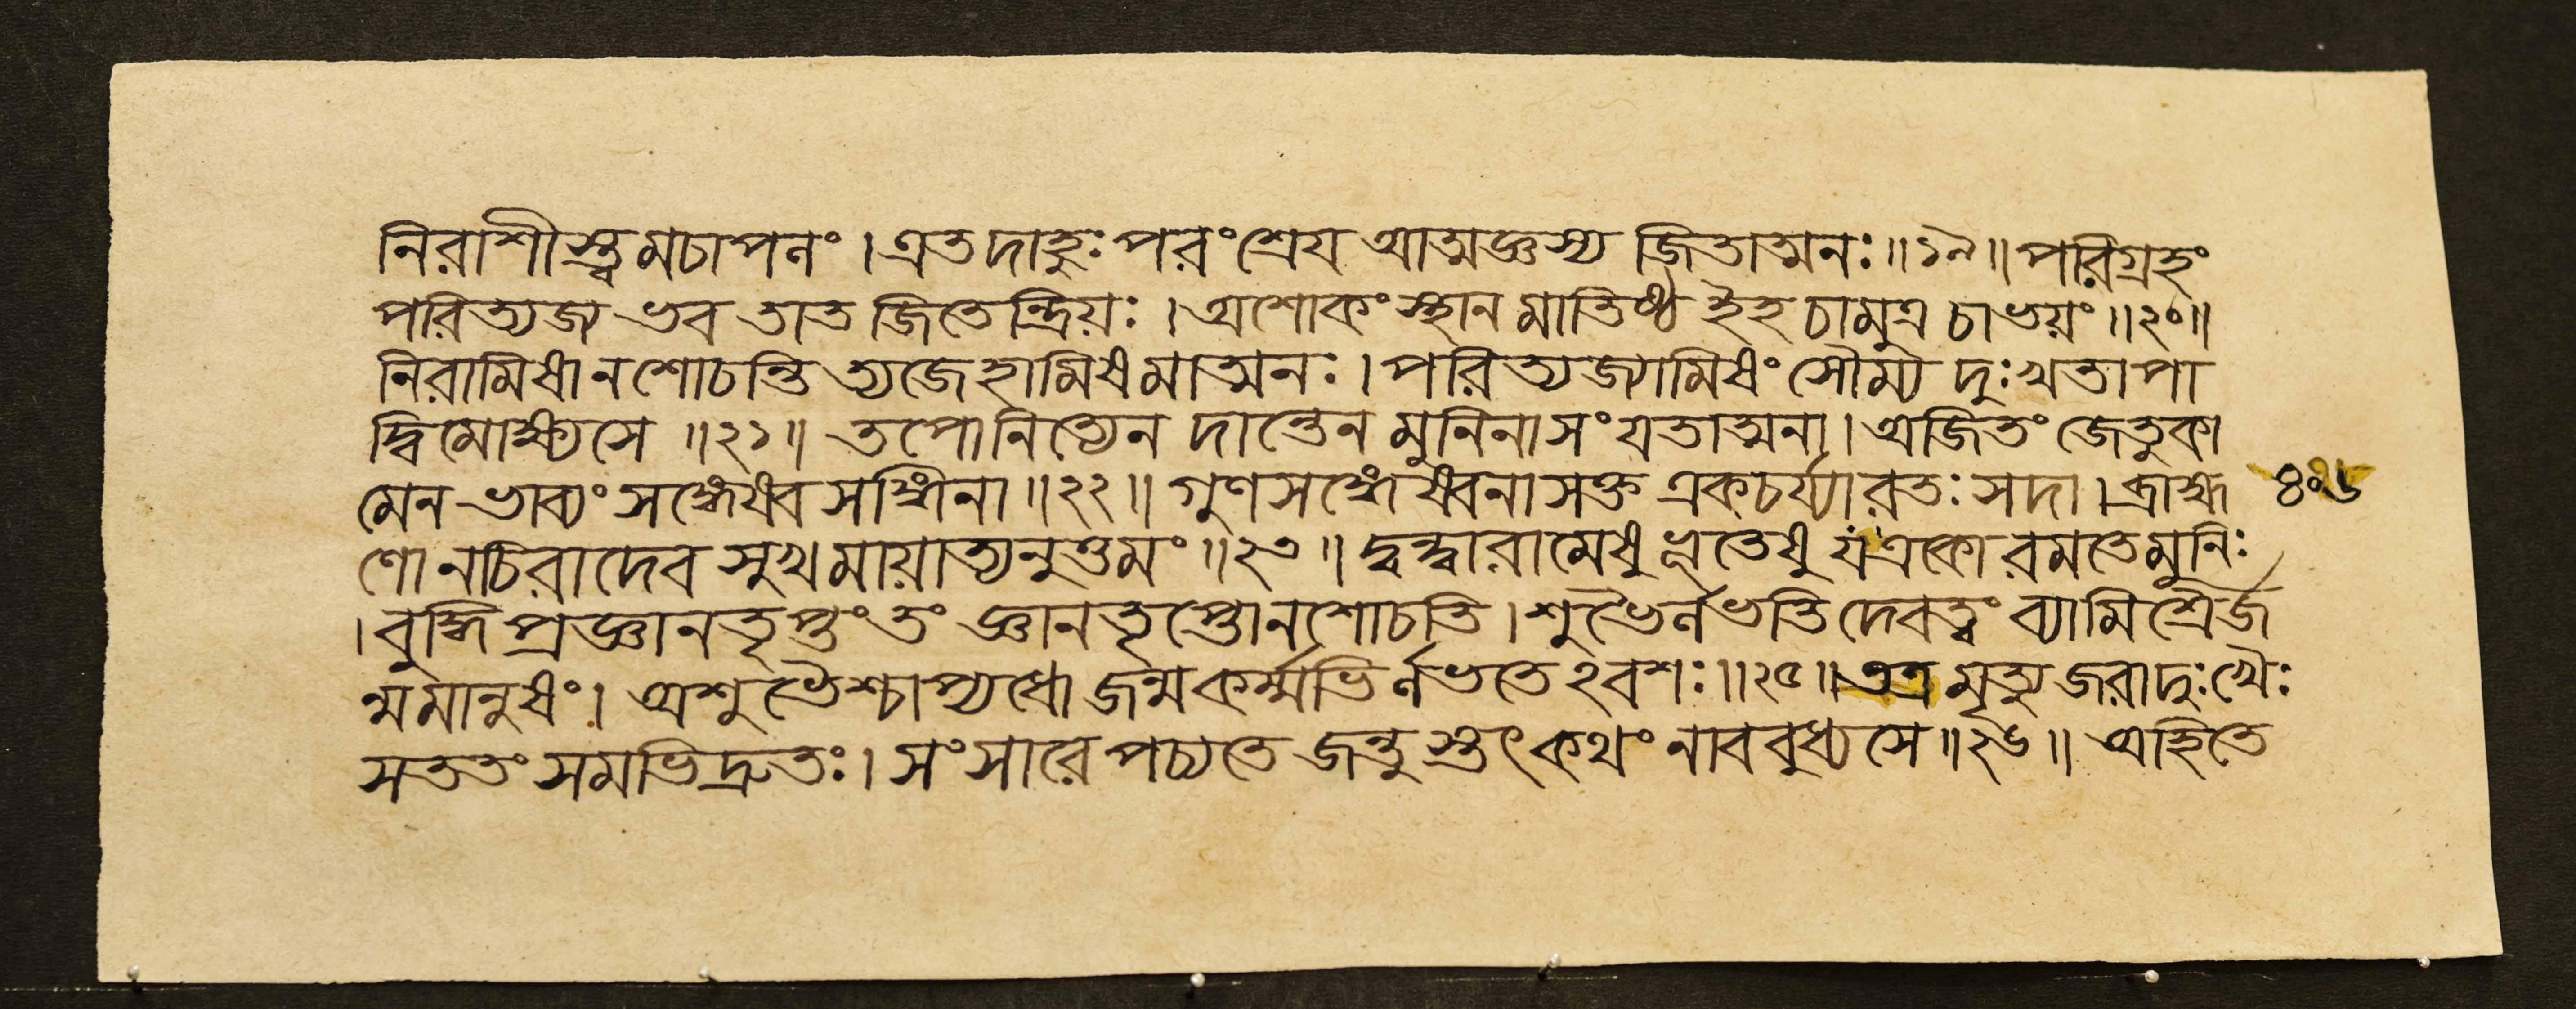 নিরাশীস্ত্বমচাপনং । এতদাহুঃ পরং শ্রেয আত্মজ্ঞস্য জিতাত্মনঃ ॥ ১৯ ॥ পরিগ্রহং
পরিত্যজ্য ভব তাত জিতেন্দ্রিয়ঃ । অশোকং স্থানমাতিষ্ঠ ইহ চামুত্র চাভয়ং ॥ ২০ ॥
নিরামিষা ন শোচন্তি ত্যজেহামিষমাত্মনঃ । পরিত্যজ্যামিষং সৌম্য দুঃখতাপা
দ্বিমোক্ষ্যসে ॥ ২১ ॥ তপোনিত্যেন দান্তেন মুনিনা সংযতাত্মনা । অজিতং জেতুকা
মেন ভাব্যং সঙ্গেষ্বসঙ্গিনা ॥ ২২ ॥ গুণসঙ্গেষ্বনাসক্ত একচর্য্যারতঃ সদা । ব্রাহ্ম
ণো নচিরাদেব সুখমায়াত্যনুত্তমং ॥ ২৩ ॥ দ্বন্দ্বারামেষু ভূতেষু য একো রমতে মুনিঃ
। বুদ্ধি প্রজ্ঞানতৃপ্তং তং জ্ঞানতৃপ্তো ন শোচতি । শুভৈর্লভতি দেবত্বং ব্যামিশ্রৈর্জ
ন্মমানুষং । অশুভৈশ্চাপ্যধো জন্ম কর্ম্মভির্লভতেঽবশঃ ॥ ২৫ ॥ তত্র মৃত্যুজরাদুঃখৈঃ
সততং সমভিদ্রুতঃ । সংসারে পচ্যতে জন্তুস্তৎ কথং নাববুধ্যসে ॥ ২৬ ॥ অহিতে